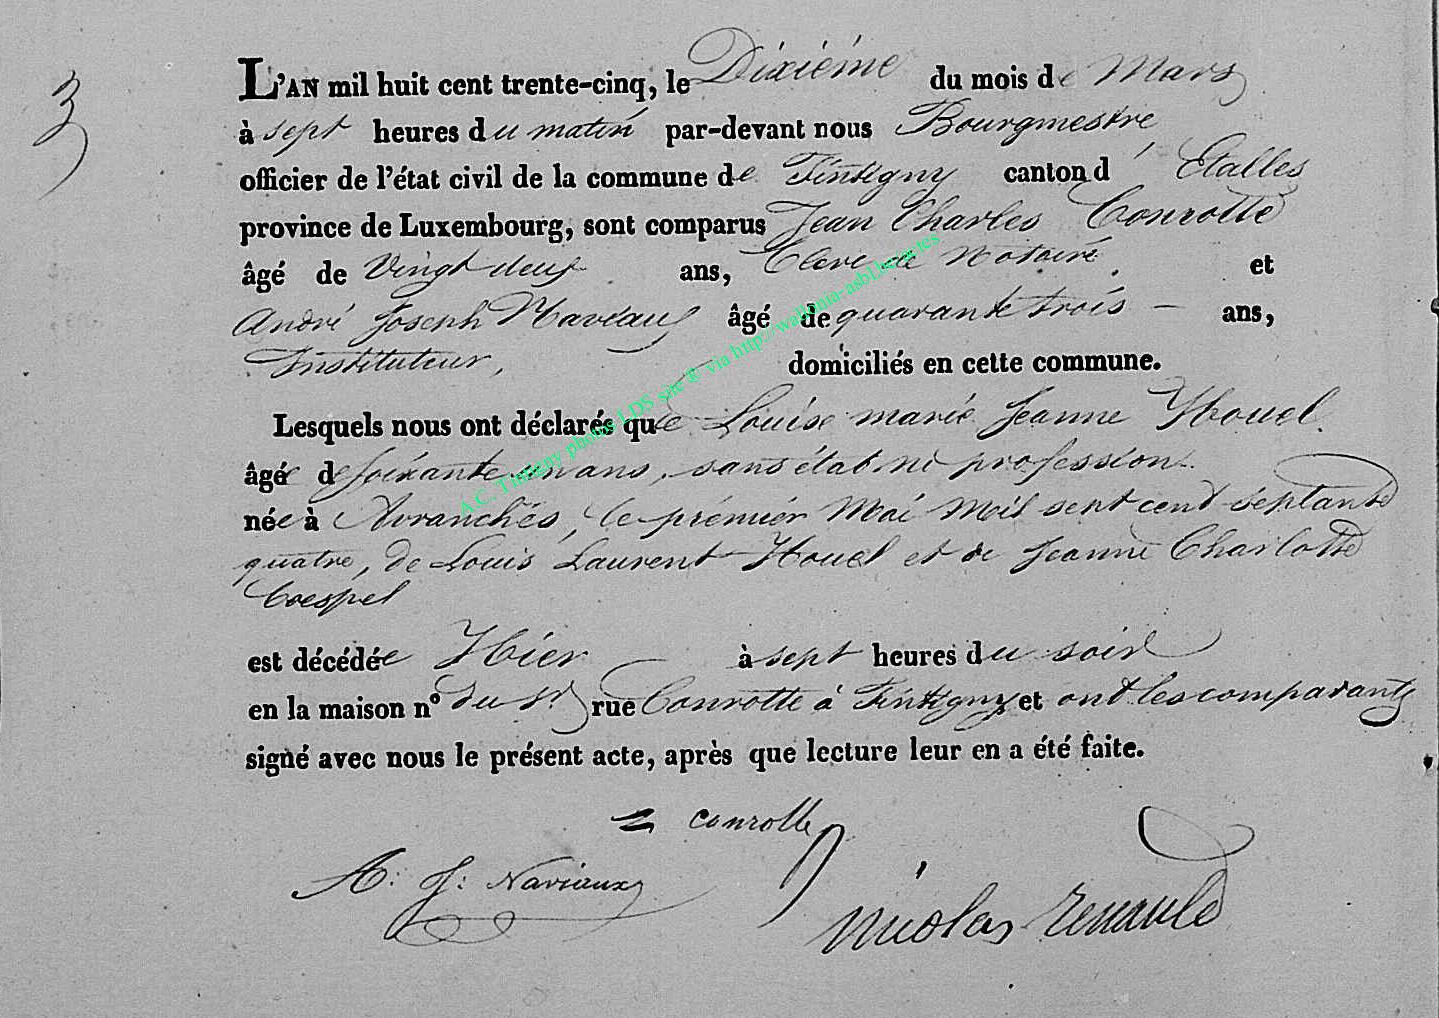 3
L'AN mil huit cent trente-cinq, le Dixiéme du mois de Mars
à sept heures du matin par-devant nous Bourgmestre
officier de l'état civil de la commune de Tintigny canton d' Etalles
province de Luxembourg, sont comparus Jean Charles Conrotte
âgé de Vingt deux ans, Clerc de Notaire et
André Joseph Naveaux âgé de quarante trois — ans,
Instituteur, domiciliés en cette commune.
Lesquels nous ont déclarés que Louise marie Jeanne Houel.
âgée de soixante un ans, sans état ni profession.
née à Avranches, le prémier Mai Mil sept cent septante
quatre, de Louis Laurent Houel et de Jeanne Charlotte
Coespel
est décédée Hier à sept heures du soir
en la maison n° du Sr rue Conrotte à Tintigny et ont les comparants
signé avec nous le présent acte, après que lecture leur en a été faite.
Conrotte
A: J: Naviaux
Nicolas Renauld
A.C. Tintigny photos LDS site R via http://wallonia-asbl.be/actes